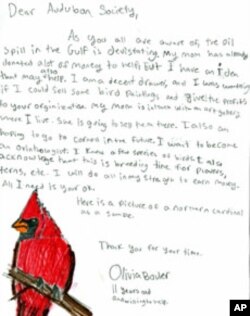 Dear Audubon Society,
As you all are aware of, the oil
spill in the Gulf is devistating. My mom has already
donated alot of money to help, but I have an idea
that may also help. I am a decent drawer, and I was wondering
if I could sell some bird paintings and give the profits
to your orginization. my mom is
where I live. She is going to see them there. I also am
hoping to go to Cornell in the future. I want to become
an ornithologist. I know a few species of birds. I also
acknowledge that this is breeding time for plovers,
terns, etc. I will do all in my strength to earn money.
All I need is your ok.
Here is a picture of a northern cardinal
as a sample.
Thank you for your time.
Olivia Bouler
11 years old
and willing to help
AP